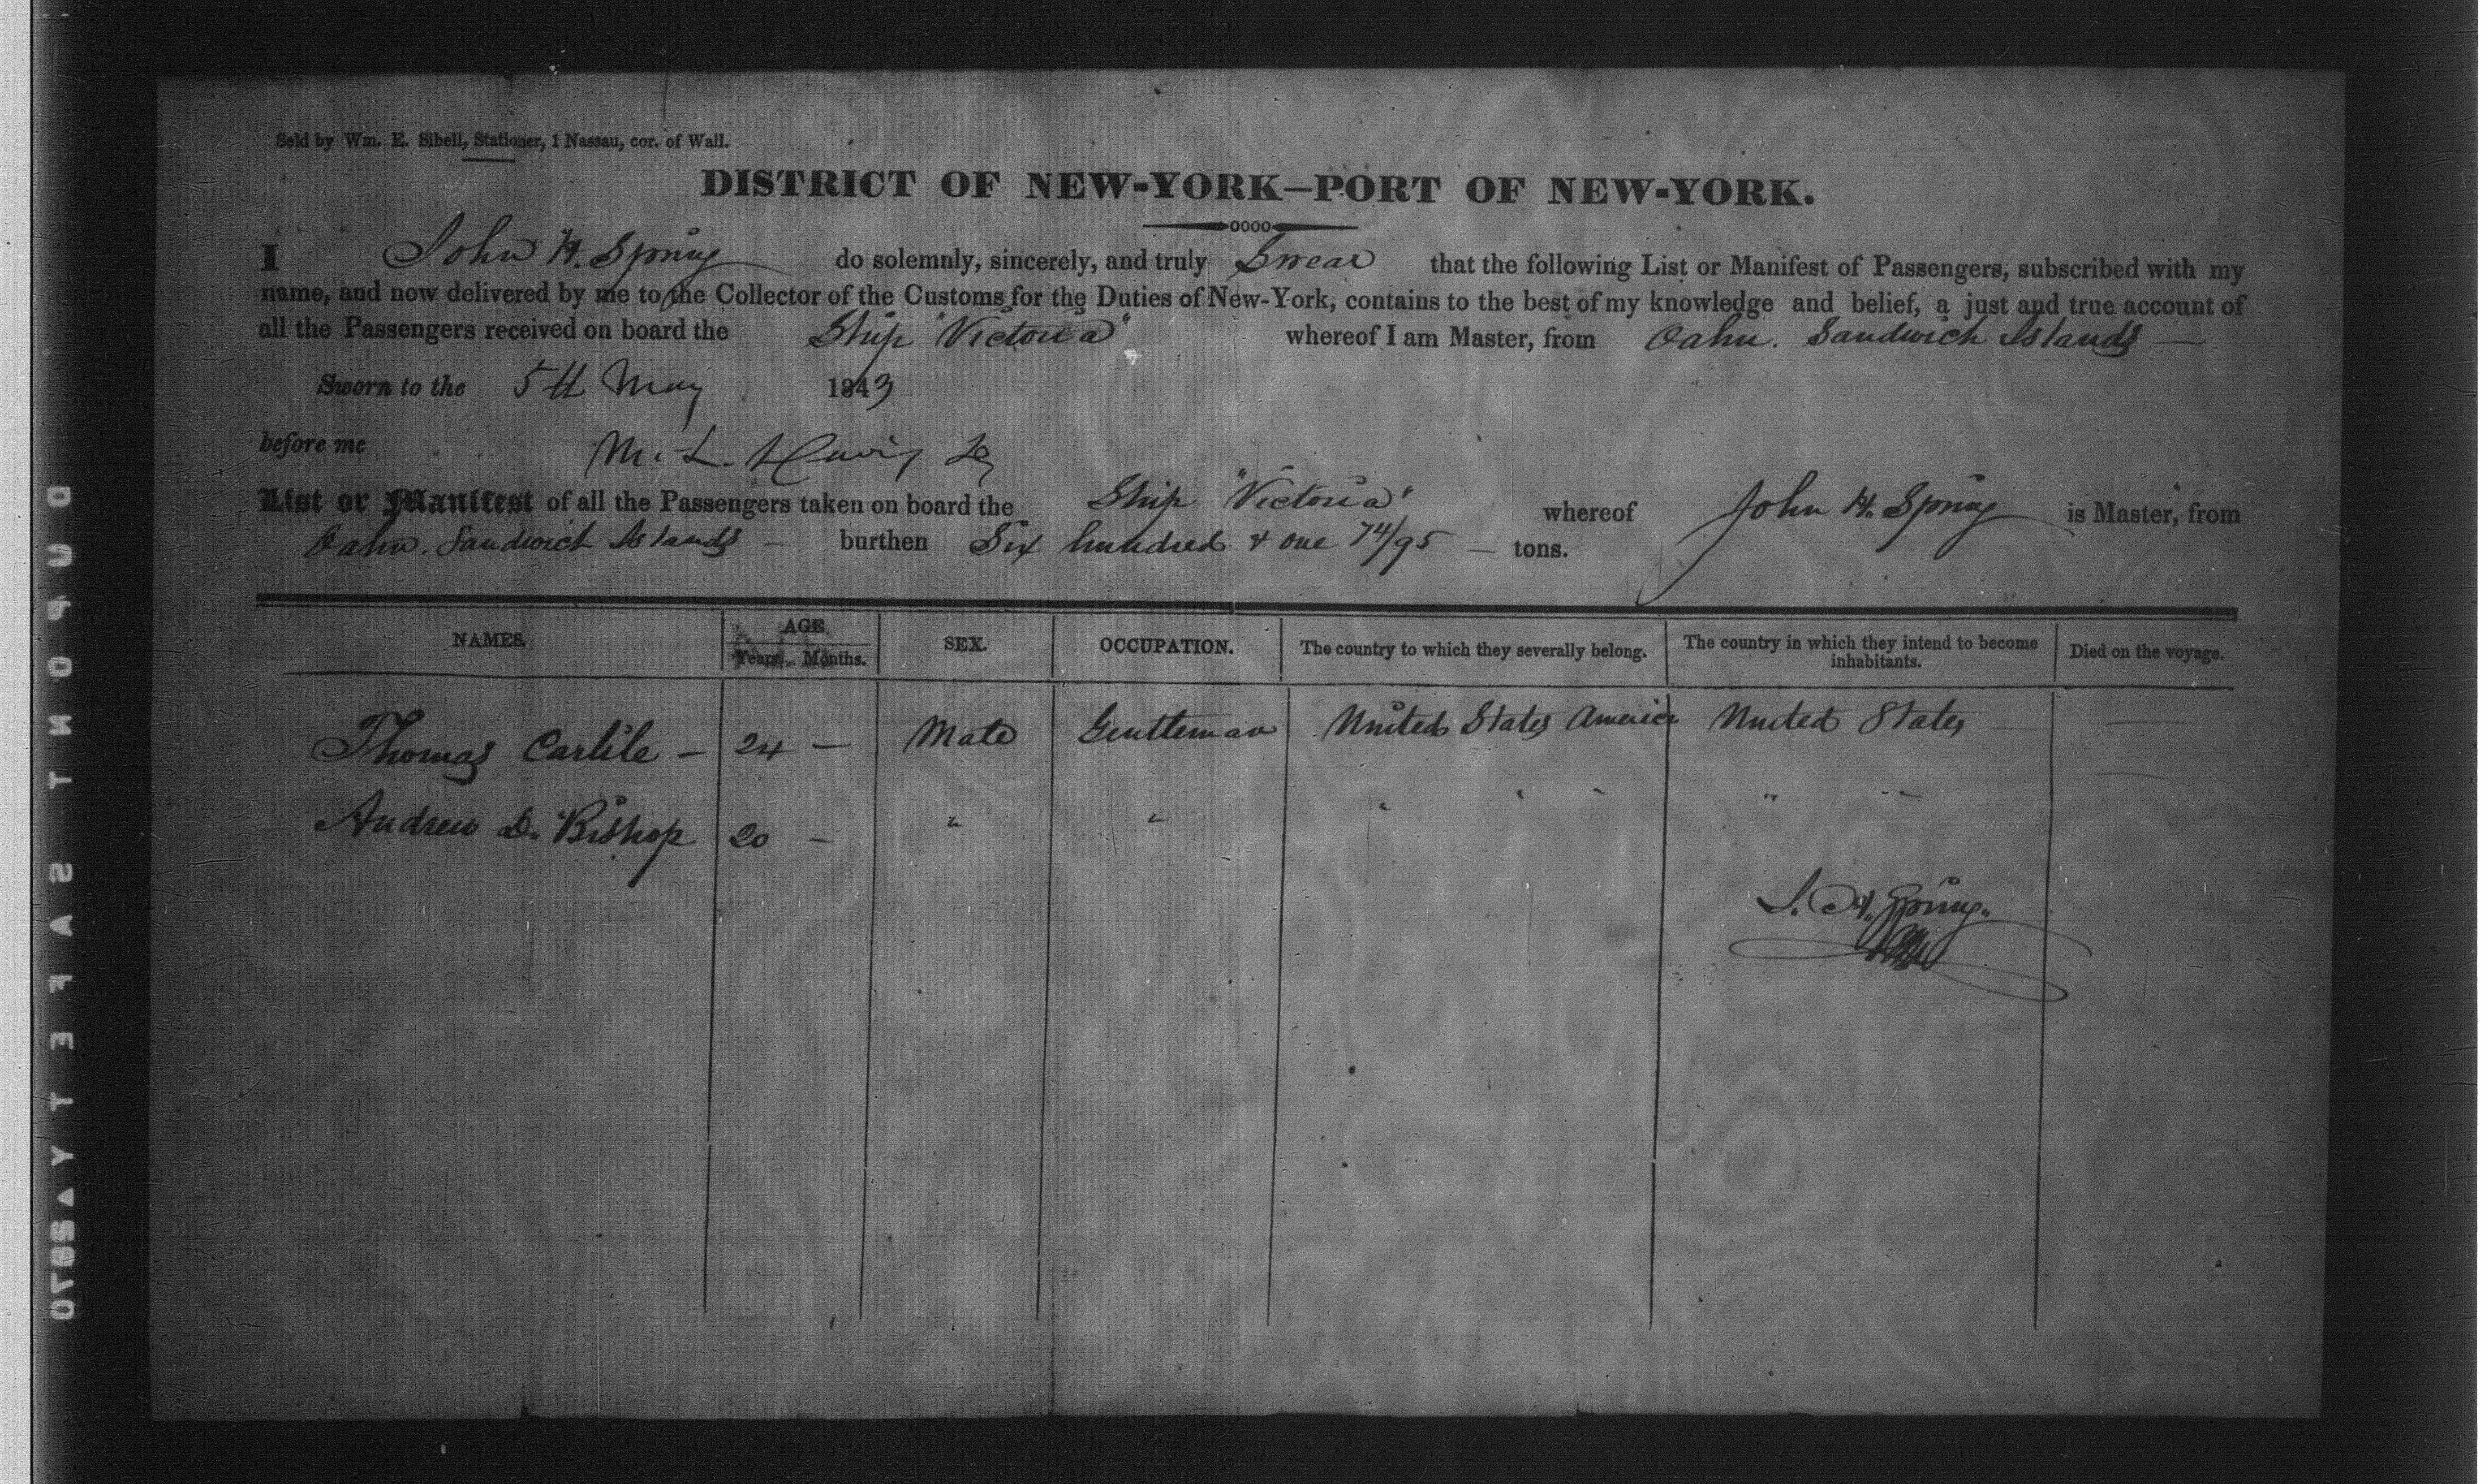 Sold by Wm. E. Sibell, Stationer, 1 Nassau, cor. of Wall.
DISTRICT OF NEW-YORK—PORT OF NEW-YORK.
I John H. Spring do solemnly, sincerely, and truly Swear that the following List or Manifest of Passengers, subscribed with my
name, and now delivered by me to the Collector of the Customs for the Duties of New-York, contains to the best of my knowledge and belief, a just and true account of
all the Passengers received on board the Ship "Victoria" whereof I am Master, from Oahu. Sandwich Islands —
Sworn to the 5th May 1843
before me M. L.
List or Manifest of all the Passengers taken on board the Ship "Victoria" whereof John H. Spring is Master, from
Oahu. Sandwich Islands — burthen Six hundred & one 74/95 — tons.
NAMES. AGE. SEX. OCCUPATION. The country to which they severally belong. The country in which they intend to become inhabitants. Died on the voyage.
Years. Months.
Thomas Carlile — 24 — Male Gentleman United States America United States —
Andrew D. Bishop 20 — " " " " " " "
J. H. Spring.
DUPONT SAFETY 0788